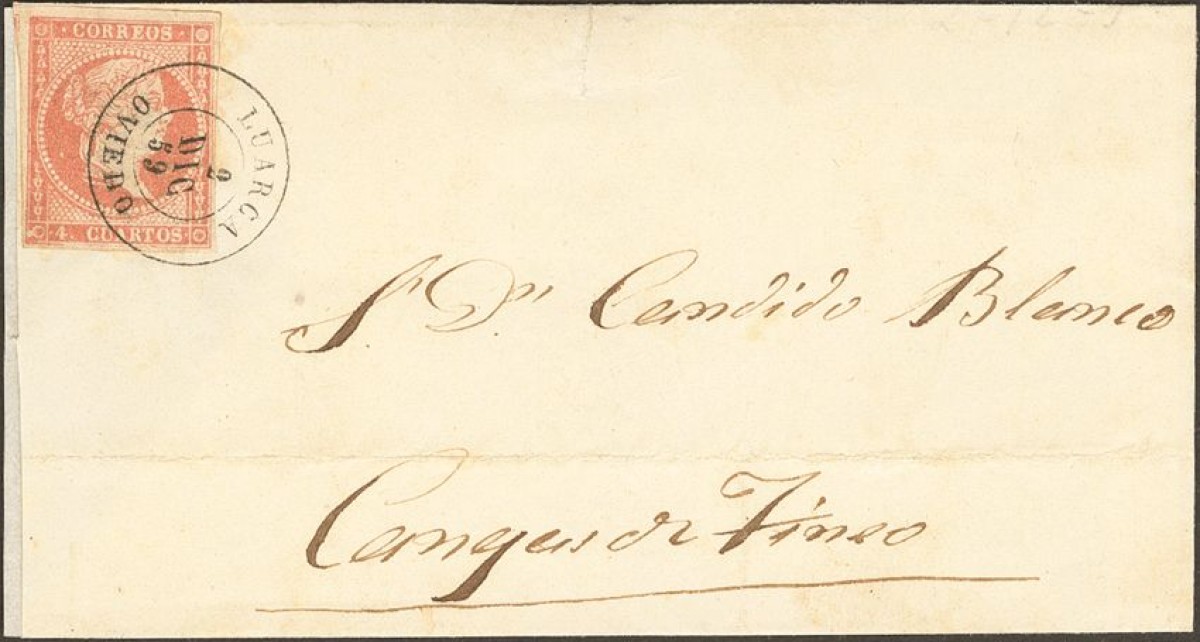 CORREOS
4. CUARTOS
LUARCA
2
DIC
59
OVIEDO
S. Dn Candido Blanco
Cangas de Tineo